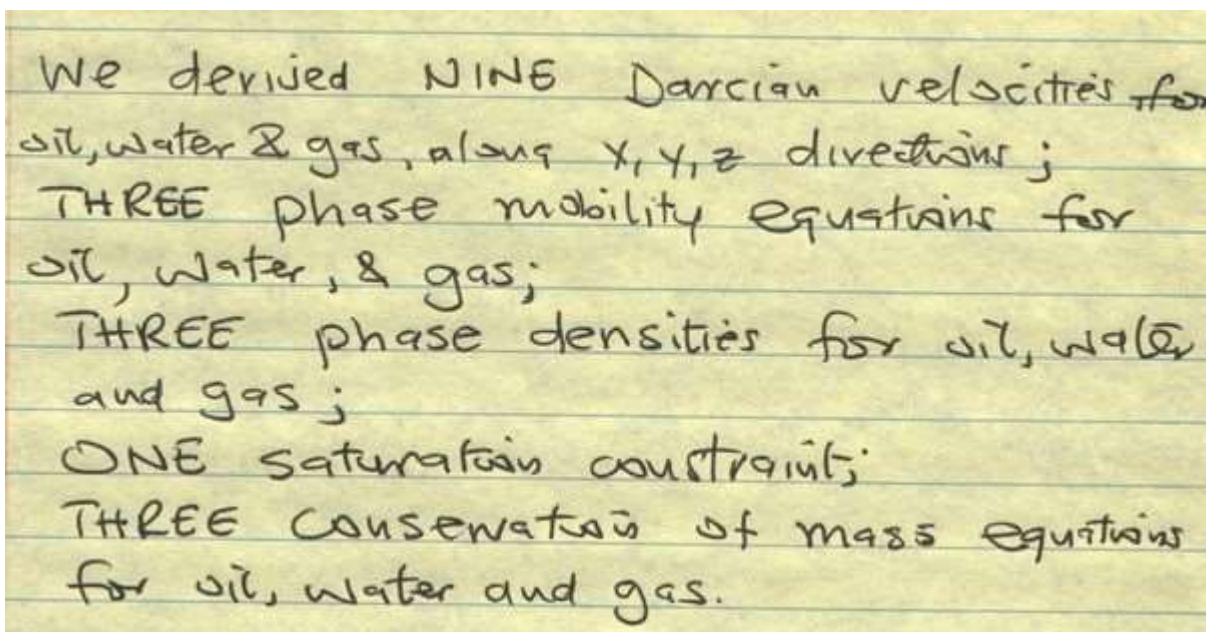 We derived NINE Darcian velocities for
oil, water & gas, along x, y, z directions;
THREE phase mobility equations for
oil, water, & gas;
THREE phase densities for oil, water
and gas;
ONE saturation constraint;
THREE conservation of mass equations
for oil, water and gas.